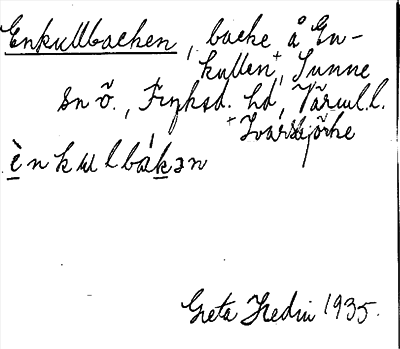 Enkullbacken, backe å En-
kullen+, Sunne
sn ö., Fryksd. hd, Värml.l.
+ Ivarsbjörke
è n k u l b á k ə n
Greta Hedin 1935.